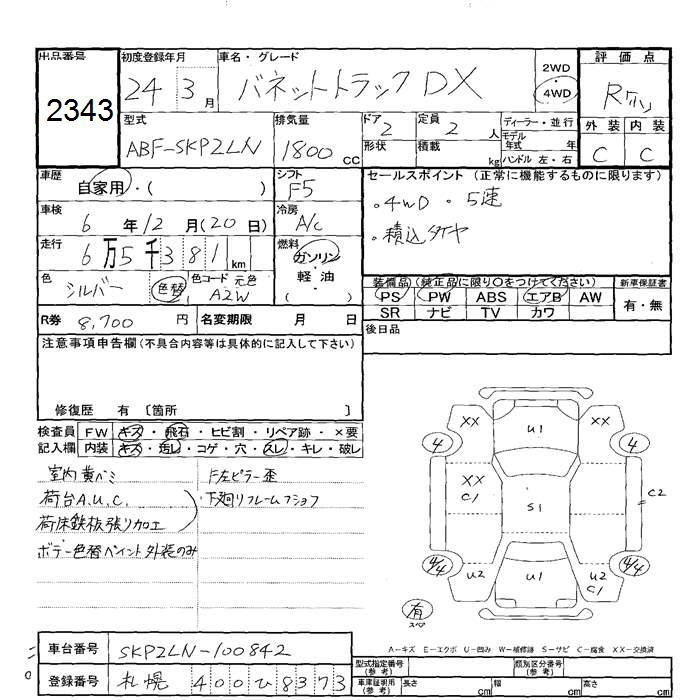 出品番号 2343
初度登録年月 24 3月
車名・グレード バネットトラック DX
2WD ・ 4WD
評価点 R
外装 C 内装 C
型式 ABF-SKP2LN
排気量 1800 cc
ドア 2 形状
定員 2 人 積載 kg
ディーラー・並行
モデル年式 年式
ハンドル 左・右
車歴 自家用・( )
シフト F5
セールスポイント (正常に機能するものに限ります)
・4WD ・5速
・積込タイヤ
車検 6年12月(20日)
冷房 A/C
走行 6万5千381 km
燃料 ガソリン・軽油 ( )
色 シルバー 色替 色コード 元色 A2W
装備品(純正品に限り○をつけてください)
PS PW ABS エアB AW
SR ナビ TV カワ
新車保証書 有・無
R券 8,700円 名変期限 月 日
後日品
注意事項申告欄(不具合内容等は具体的に記入して下さい)
修復歴 有 〔箇所 〕
検査員 FW キズ・飛石・ヒビ割・リペア跡・×要
記入欄 内装 キズ・汚レ・コゲ・穴・スレ・キレ・破レ
室内黄ベミ F左ピラー歪
荷台A.U.C. 下廻リフレームフショフ
荷床鉄板張り加工
ボデー色替ペイント外装のみ
XX U1 XX
4 4
XX C1 S1 C2
4/4 4/4
U2 U1 U2 C1
有 スペア
A－キズ E－エクボ U－凹み W－補修跡 S－サビ C－腐食 XX－交換済
車台番号 SKP2LN-100842
登録番号 札幌 400ひ8373
型式指定番号(参考) 類別区分番号(参考)
車庫証明用(参考) 長さ cm 幅 cm 高さ cm